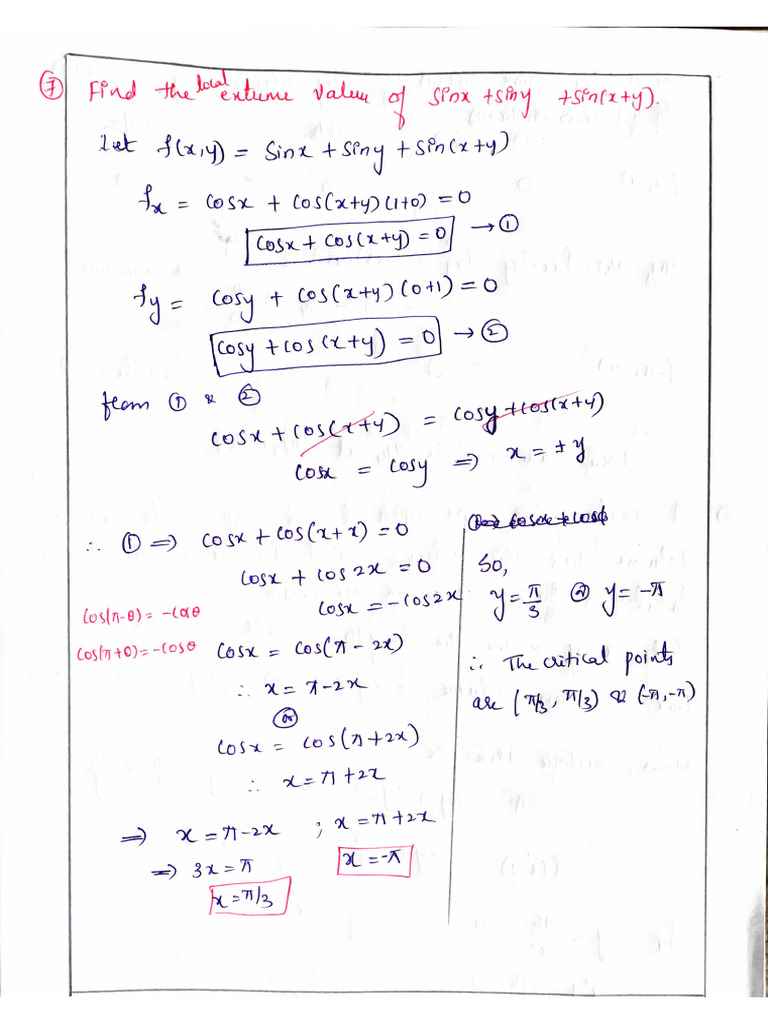 7 Find the local extreme value of sinx + siny + sin(x+y).
Let f(x,y) = sinx + siny + sin(x+y)
fx = cosx + cos(x+y)(1+0) = 0
cosx + cos(x+y) = 0 → ①
fy = cosy + cos(x+y)(0+1) = 0
cosy + cos(x+y) = 0 → ②
from ① & ②
cosx + cos(x+y) = cosy + cos(x+y)
cosx = cosy ⇒ x = ± y
∴ ① ⇒ cosx + cos(x+x) = 0
cosx + cos2x = 0
cosx = -cos2x
cos(π-θ) = -cosθ
cos(π+θ) = -cosθ
cosx = cos(π-2x)
∴ x = π-2x
or
cosx = cos(π+2x)
∴ x = π+2x
⇒ x = π-2x ; x = π+2x
⇒ 3x = π
x = -π
x = π/3
So,
y = π/3 or y = -π
∴ The critical points
are (π/3, π/3) & (-π, -π)